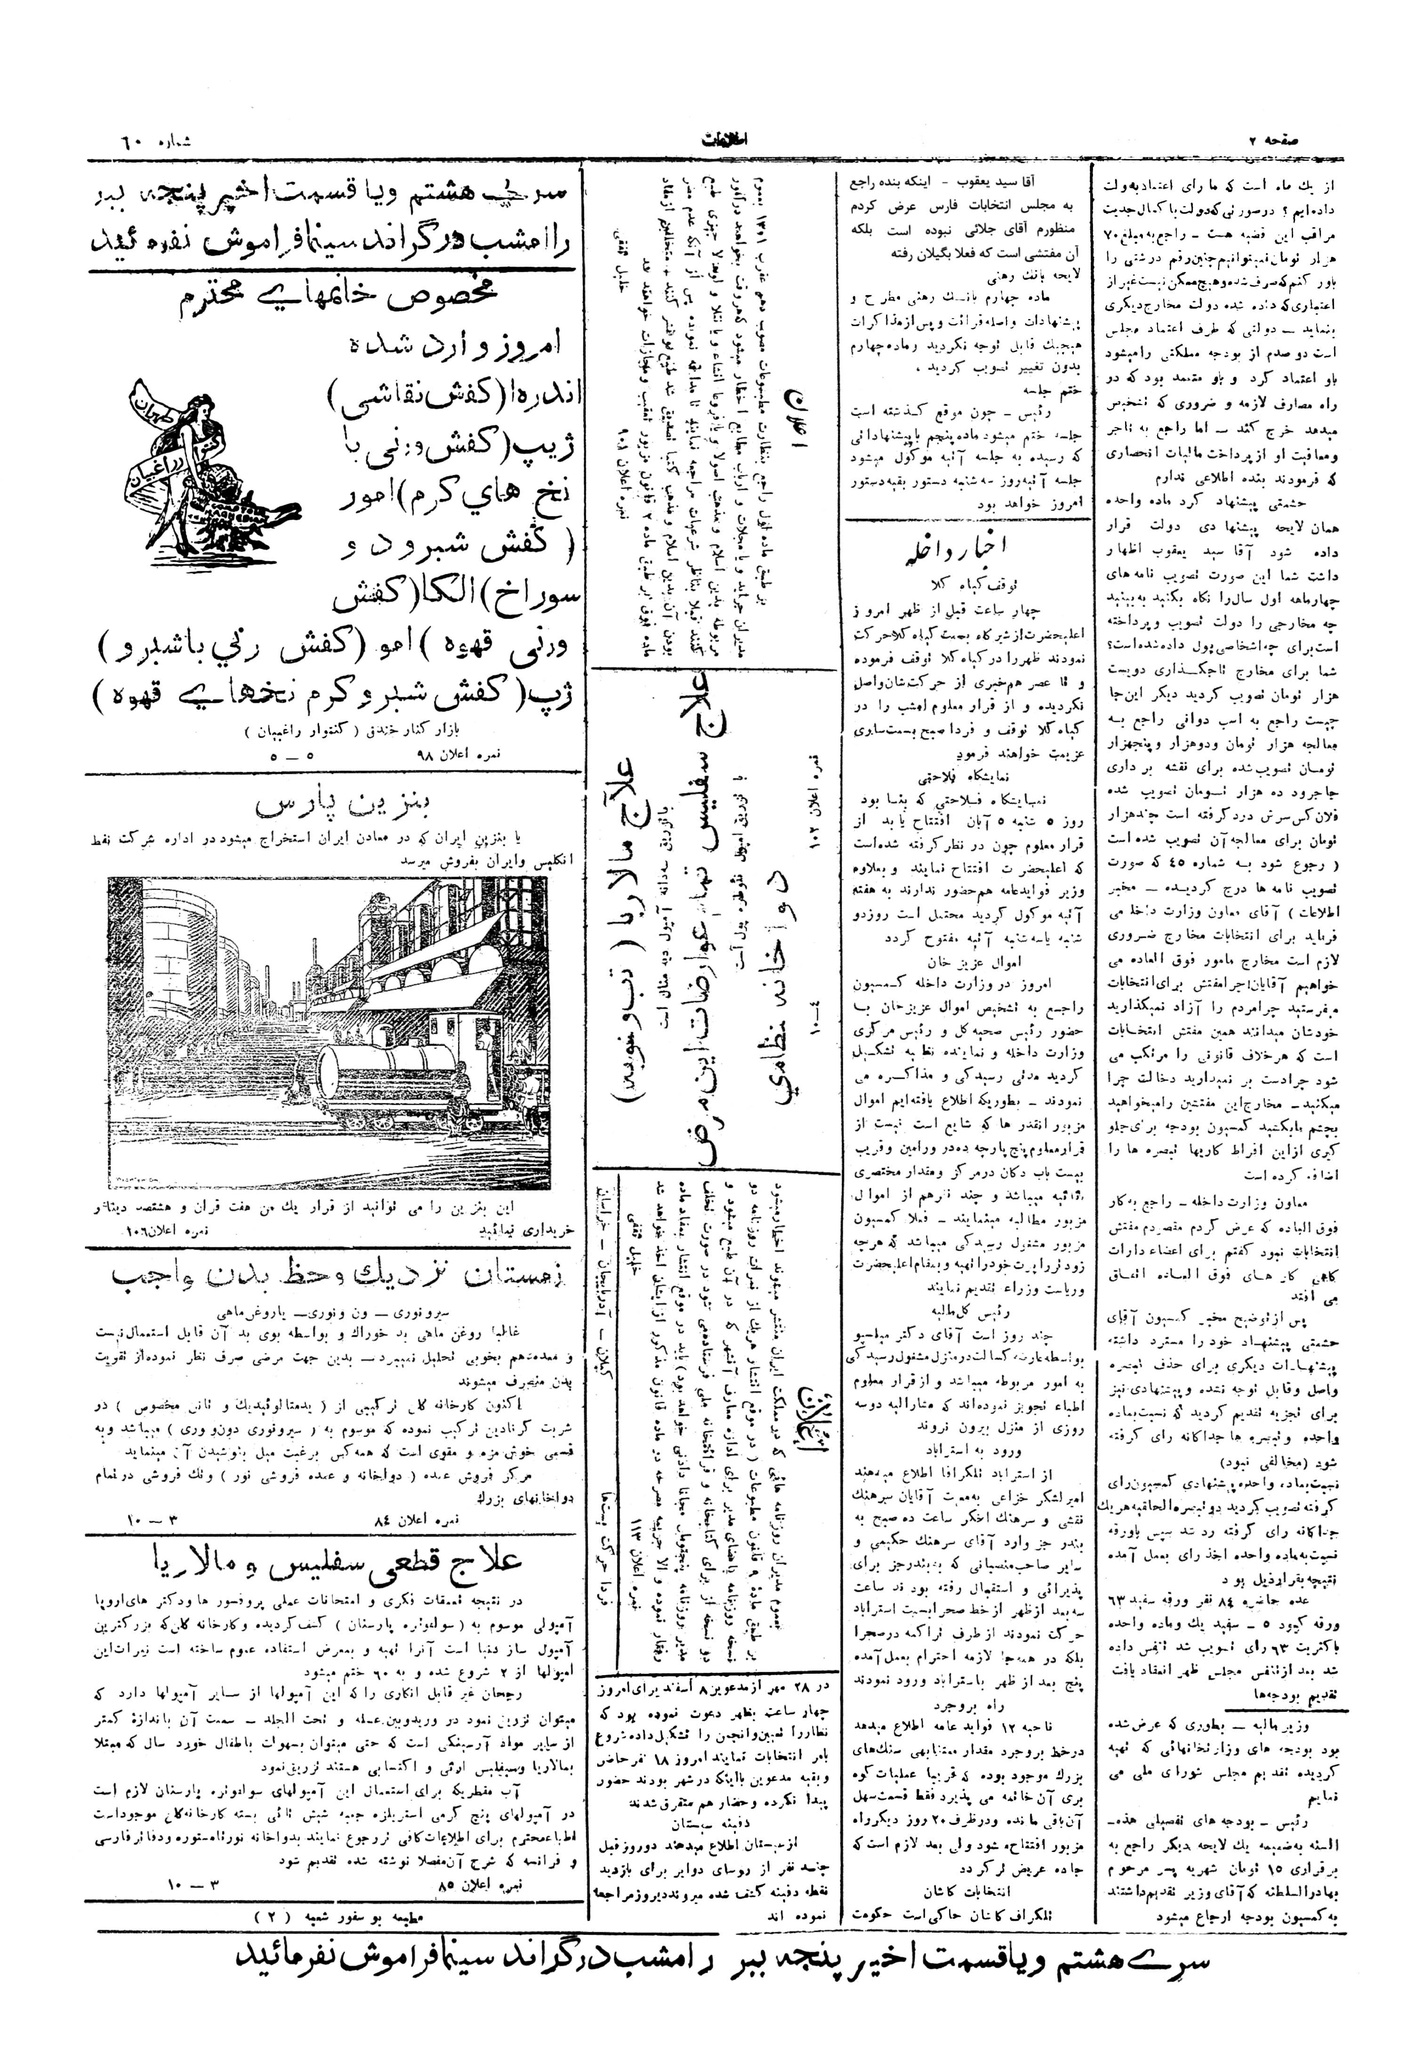 صفحه ۲
اطلاعات
شماره ۶۰
از یك ماه است که ما رای اعتماد به دولت
داده ایم؟ در صورتی که دولت با کمال جدیت
مراقب این قضیه هست – راجع به مبلغ ۷۰
هزار تومان نمیتوانیم چنین رقم درشتی را
باور کنم که صرف شده و هیچ ممکن نیست غیر از
اعتباری که داده شده دولت مخارج دیگری
بنماید – دولتی که طرف اعتماد مجلس
است دو صدم از بودجه مملکتی را میشود
باو اعتماد کرد و باو معتمد بود که در
راه مصارف لازمه و ضروری که تشخیص
میدهد خرج کند – اما راجع به تاجر
ومعافیت او از پرداخت مالیات انحصاری
که فرمودند بنده اطلاعی ندارم
حشمتی پیشنهاد کرد ماده واحده
همان لایحه پیشنهادی دولت قرار
داده شود آقا سید یعقوب اظهار
داشت شما این صورت تصویب نامه های
چهارماهه اول سال را نگاه بکنید به بینید
چه مخارجی را دولت تصویب و پرداخته
است برای چه اشخاصی پول داده شده است؟
شما برای مخارج تاجگذاری دویست
هزار تومان تصویب کردید دیگر این جا
چیست راجع به اسب دوانی راجع به
معالجه هزار تومان ودوهزار و پنجهزار
تومان تصویب شده برای نقشه برداری
جاجرود ده هزار تومان تصویب شده
فلان کس سرش درد گرفته است چند هزار
تومان برای معالجه آن تصویب شده است
( رجوع شود به شماره ۴۵ که صورت
تصویب نامه ها درج گردیده – مخبر
اطلاعات ) آقای معاون وزارت داخله می
فرماید برای انتخابات مخارج ضروری
لازم است مخارج مامور فوق العاده می
خواهیم آقایان چرا مفتش برای انتخابات
میفرستید چرا مردم را آزاد نمیگذارید
خودشان میدانند همین مفتش انتخابات
است که هر خلاف قانونی را مرتکب می
شود چرا دست بر نمیدارید دخالت چرا
میکنید – مخارج این مفتشین را میخواهید
بچشم ما بکشید کمسیون بودجه برای جلو
گیری از این افراط کاریها تبصره ها را
اضافه کرده است
معاون وزارت داخله – راجع به کار
فوق العاده که عرض کردم مقصودم مفتش
انتخابات نبود گفتم برای اعضاء دارات
گاهی کار های فوق العاده اتفاق
می افتد
پس از توضیح مخبر کمسیون آقای
حشمتی پیشنهاد خود را مسترد داشته
پیشنهادات دیگری برای حذف تبصره
واصل وقابل توجه نشده و پیشنهادی نیز
برای تجزیه تقدیم گردید که نسبت بماده
واحده و تبصره ها جداگانه رای گرفته
شود (مخالفی نبود)
نسبت بماده واحده پیشنهادی کمسیون رای
گرفته تصویب گردید دو تبصره الحاقیه هر یك
جداگانه رای گرفته رد شد سپس با ورقه
نسبت به ماده واحده اخذ رای بعمل آمده
نتیجه بقرار ذیل بود
عده حاضره ۸۴ نفر ورقه سفید ۶۳
ورقه کبود ۵ – سفید یك و ماده واحده
با کثریت ۶۳ رای تصویب شد تنفس داده
شد بعد از تنفس مجلس ظهر انعقاد یافت
تقدیم بودجه ها
وزیر مالیه – بطوری که عرض شده
بود بودجه های وزارتخانهائی که تهیه
گردیده تقدیم مجلس شورای ملی می
نمایم
رئیس – بودجه های تفصیلی هذه –
السنه بضمیمه یك لایحه دیگر راجع به
برقراری ۱۵ تومان شهریه پسر مرحوم
بهادرالسلطنه که آقای وزیر تقدیم داشتند
به کمسیون بودجه ارجاع میشود
آقا سید یعقوب – اینکه بنده راجع
به مجلس انتخابات فارس عرض کردم
منظورم آقای جلائی نبوده است بلکه
آن مفتشی است که فعلا بگیلان رفته
لایحه بانك رهنی
ماده چهارم بانك رهنی مطرح و
پیشنهادات واصله قرائت و پس از مذاکرات
هیچیك قابل توجه نگردید و ماده چهارم
بدون تغییر تصویب گردید .
ختم جلسه
رئیس – چون موقع گذشته است
جلسه ختم میشود ماده پنجم با پیشنهاداتی
که رسیده به جلسه آتیه موکول میشود
جلسه آتیه روز سه شنبه دستور بقیه دستور
امروز خواهد بود
اخبار داخله
توقف گیاه کلا
چهار ساعت قبل از ظهر امروز
اعلیحضرت از شیرگاه بسمت گیاه کلا حرکت
نمودند ظهر را در گیاه کلا توقف فرموده
و تا عصر هم خبری از حرکت شان واصل
نگردیده و از قرار معلوم امشب را در
گیاه کلا توقف و فردا صبح بسمت ساری
عزیمت خواهند فرمود
نمایشگاه فلاحتی
نمایشگاه فلاحتی که بنا بود
روز ۵ شنبه ۵ آبان افتتاح یابد از
قرار معلوم چون در نظر گرفته شده است
که اعلیحضرت افتتاح نمایند و بعلاوه
وزیر فواید عامه هم حضور ندارند به هفته
آتیه موکول گردید محتمل است روز دو
شنبه یا سه شنبه آتیه مفتوح گردد
اموال عزیز خان
امروز در وزارت داخله کمسیون
راجع به تشخیص اموال عزیز خان با
حضور رئیس صحیه کل و رئیس مرکزی
وزارت داخله و نماینده نظمیه تشکیل
گردید مدتی رسیدگی و مذاکره می
نمودند – بطوریکه اطلاع یافته ایم اموال
مزبور آنقدر ها که شایع است نیست از
قرار معلوم پنج پارچه ده در ورامین و قریب
بیست باب دکان در مرکز و مقدار مختصری
اثاثیه میباشد و چند نفر هم از اموال
مزبور مطالبه مینمایند – فعلا کمسیون
مزبور مشغول رسیدگی میباشد که هر چه
زودتر راپرت خود را تهیه و بمقام اعلیحضرت
وریاست وزراء تقدیم نمایند
رئیس کل مالیه
چند روز است آقای دکتر میلسپو
بواسطه عارضه کسالت در منزل مشغول رسیدگی
به امور مربوطه میباشد و از قرار معلوم
اطباء تجویز نموده اند که مشارالیه دو سه
روزی از منزل بیرون نروند
ورود به استراباد
از استراباد تلگرافا اطلاع میدهند
امیر لشکر خزاعی بمعیت آقایان سرهنك
نقشی و سرهنك اخگر ساعت ده صبح به
بندر جز وارد آقای سرهنك حکیمی و
سایر صاحبمنصبانی که به بندر جز برای
پذیرائی و استقبال رفته بودند ساعت
سه بعد از ظهر از خط صحرا بسمت استراباد
حرکت نمودند از طرف تراکمه در صحرا
بلکه در همه جا لازمه احترام بعمل آمده
پنج بعد از ظهر باستراباد ورود نمودند
راه بروجرد
ناحیه ۱۲ فواید عامه اطلاع میدهد
در خط بروجرد مقدار معتنابهی سنك های
بزرك موجود بوده که تقریبا عملیات کوه
بری آن خاتمه می پذیرد فقط قسمت سهل
آن باقی مانده و در ظرف ۲۰ روز دیگر راه
مزبور افتتاح شود ولی بعد لازم است که
جاده عریض تر گردد
انتخابات کاشان
تلگراف کاشان حاکی است حکومت
اعلان
بر طبق ماده اول راجع بنظارت مطبوعات مصوب دهم عقرب ۱۳۰۱ بعموم
مدیران جراید و یا مجلات و ارباب مطابع اخطار میشود که هر وقت بخواهند در امور
مربوطه بدین اسلام و مذهب اصولا و یا فروعا انشاء و یا نقلا و لو نقلا چیزی طبع
کنند قبلا بناظر شرعیات مراجعه نمایند تا مداقه نموده پس از آنکه عدم مضر
بودن آن بدین اسلام و مذهب کتبا تصدیق شد طبع و نشر کنند و متخلفین از مفاد
ماده فوق بر طبق ماده ۲ قانون مزبور تعقیب و مجازات خواهند شد
نمره اعلان ۹۰۸
خلیل ثقفی
علاج مالاریا ( تب و نوبه )
با تزریق سه دانه آمپول ده مثقال است
علاج سفلیس تمام عوارضات این مرض
با تزریق آمپول نئوطره پول آست
دواخانه نظامی
نمره اعلان ۱۰۲
۴–۱۰
اعلان
بعموم مدیران روزنامه هائی که در مملکت ایران منتشر میشوند اخطار میشود
بر طبق ماده ۹ قانون مطبوعات ( در موقع انتشار هر یك از نمرات روزنامه دو
نسخه روزنامه با امضای مدیر برای اداره معارف آنشهر که در آن طبع میشود و
دو نسخه از برای کتابخانه و قرائتخانه ملی فرستاده می شود در صورت تخلف
مدیر روزنامه بپنج تومان مجازات دادنی خواهد بود ) باید در موقع انتشار بمفاد ماده
رفتار نموده و الا جریمه مصرحه در ماده قانون مذکور از ایشان اخذ خواهد شد
نمره اعلان ۱۱۳
خلیل ثقفی
فردا حرکت پست ها
گیلان – آذربایجان – خراسان
در ۲۸ مهر از مدعوین ۸ اسفند برای امروز
چهار ساعت بظهر دعوت نموده بود که
نظار را تعیین و انجمن را تشکیل داده شروع
بامر انتخابات نمایند امروز ۱۸ نفر حاضر
و بقیه مدعوین با اینکه در شهر بودند حضور
پیدا نکرده و حضار هم متفرق شدند
دفینه سیستان
از سیستان اطلاع میدهند دو روز قبل
چند نفر از روسای دوایر برای بازدید
نقطه دفینه کشف شده میروند دیروز مراجعه
نموده اند
سری هشتم و یا قسمت اخیر پنجه ببر
را امشب در گراند سینما فراموش نفرمائید
مخصوص خانمهای محترم
امروز وارد شده
اندره!(کفش نقاشی)
ژیپ(کفش ورنی با
نخ های کرم)امور
(کفش شبرو د و
سوراخ)الکا(کفش
ورنی قهوه)امو(کفش رنی باشبرو)
ژپ(کفش شبرو کرم نخهای قهوه)
طهران
کنتوار
راغبیان
بازار کنار خندق ( کنتوار راغبیان )
نمره اعلان ۹۸
۵ – ۵
بنزین پارس
یا بنزین ایران که در معادن ایران استخراج میشود در اداره شرکت نفط
انگلیس و ایران بفروش میرسد
این بنزین را می توانید از قرار یك من هفت قران و هشتصد دینار
خریداری نمائید
نمره اعلان ۱۰۶
زمستان نزدیك و حفظ بدن واجب
سیرونوری – ون ونوری – یا روغن ماهی
غالبا روغن ماهی بد خوراك و بواسطه بوی بد آن قابل استعمال نیست
و معده هم بخوبی تحلیل نمیبرد – بدین جهت مرضی صرف نظر نموده از تقویت
بدن منصرف میشوند
اکنون کارخانه گان ترکیبی از ( یدمتالوئیدیك و تانن مخصوص ) در
شربت گرنادین ترکیب نموده که موسوم به ( سیرونوری دون وری ) میباشد و به
قسمی خوش مزه و مقوی است که همه کس برغبت میل بنوشیدن آن مینماید
مرکز فروش عمده ( دواخانه و عمده فروشی نور ) و تك فروشی در تمام
دواخانهای بزرك
نمره اعلان ۸۴
۳ – ۱۰
علاج قطعی سفلیس و مالاریا
در نتیجه تعمقات فکری و امتحانات عملی پروفسور ها و دکتر های اروپا
آمپولی موسوم به ( سولفوتره پارستان ) کشف گردیده و کارخانه گان که بزرکترین
آمپول ساز دنیا است آنرا تهیه و بمعرض استفاده عموم ساخته است نمرات این
آمپولها از ۲ شروع شده و به ۶۰ ختم میشود
رجحان غیر قابل انکاری را که این آمپولها از سایر آمپولها دارد که
میتوان تزریق نمود در وریدو بین عضله و تحت الجلد – سمیت آن باندازه کمتر
از سایر مواد آرسنیکی است که حتی میتوان بسهولت باطفال خورد سال که مبتلا
بمالاریا و سیفلیس ارثی و اکتسابی هستند تزریق نمود
آب مقطریکه برای استعمال این آمپولهای سولفوتره پارستان لازم است
در آمپولهای پنج گرمی استریلزه جعبه شیش تائی بسته کارخانه گان موجود است
اطباء محترم برای اطلاعات کافی تر رجوع نمایند بدواخانه نور شاه ستوره و دفاتر فارسی
و فرانسه که شرح آن مفصلا نوشته شده تقدیم شود
نمره اعلان ۸۵
۳ – ۱۰
مطبعه بوسفور شعبه ( ۲ )
سری هشتم و یا قسمت اخیر پنجه ببر را امشب در گراند سینما فراموش نفرمائید